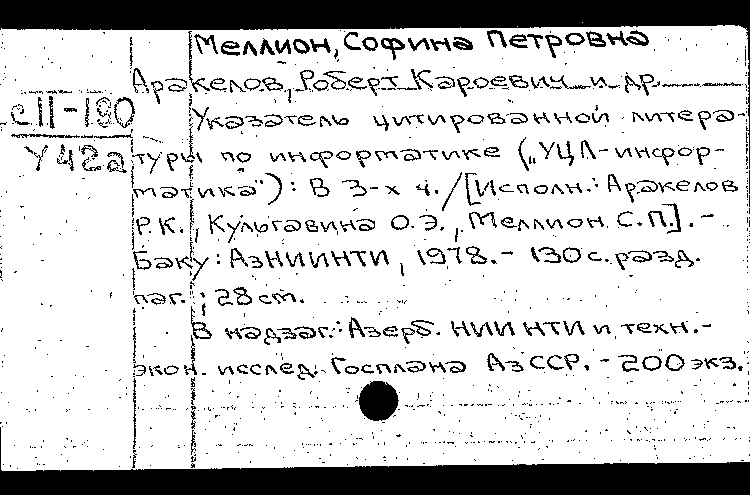 Меллион, Софина Петровна
Аракелов, Роберт Кароевич и др.
с11-180
У42а
Указатель цитированной литера-
туры по информатике („УЦЛ-инфор-
матика"): В 3-х ч. / [Исполн.: Аракелов
Р.К., Кульгавина О.Э., Меллион С.П.]. –
Баку: АзНИИНТИ, 1978. – 130 с. разд.
паг. ; 28 cm.
В надзаг.: Азерб. НИИ НТИ и техн.-
экон. исслед. Госплана АзССР. – 200 экз.